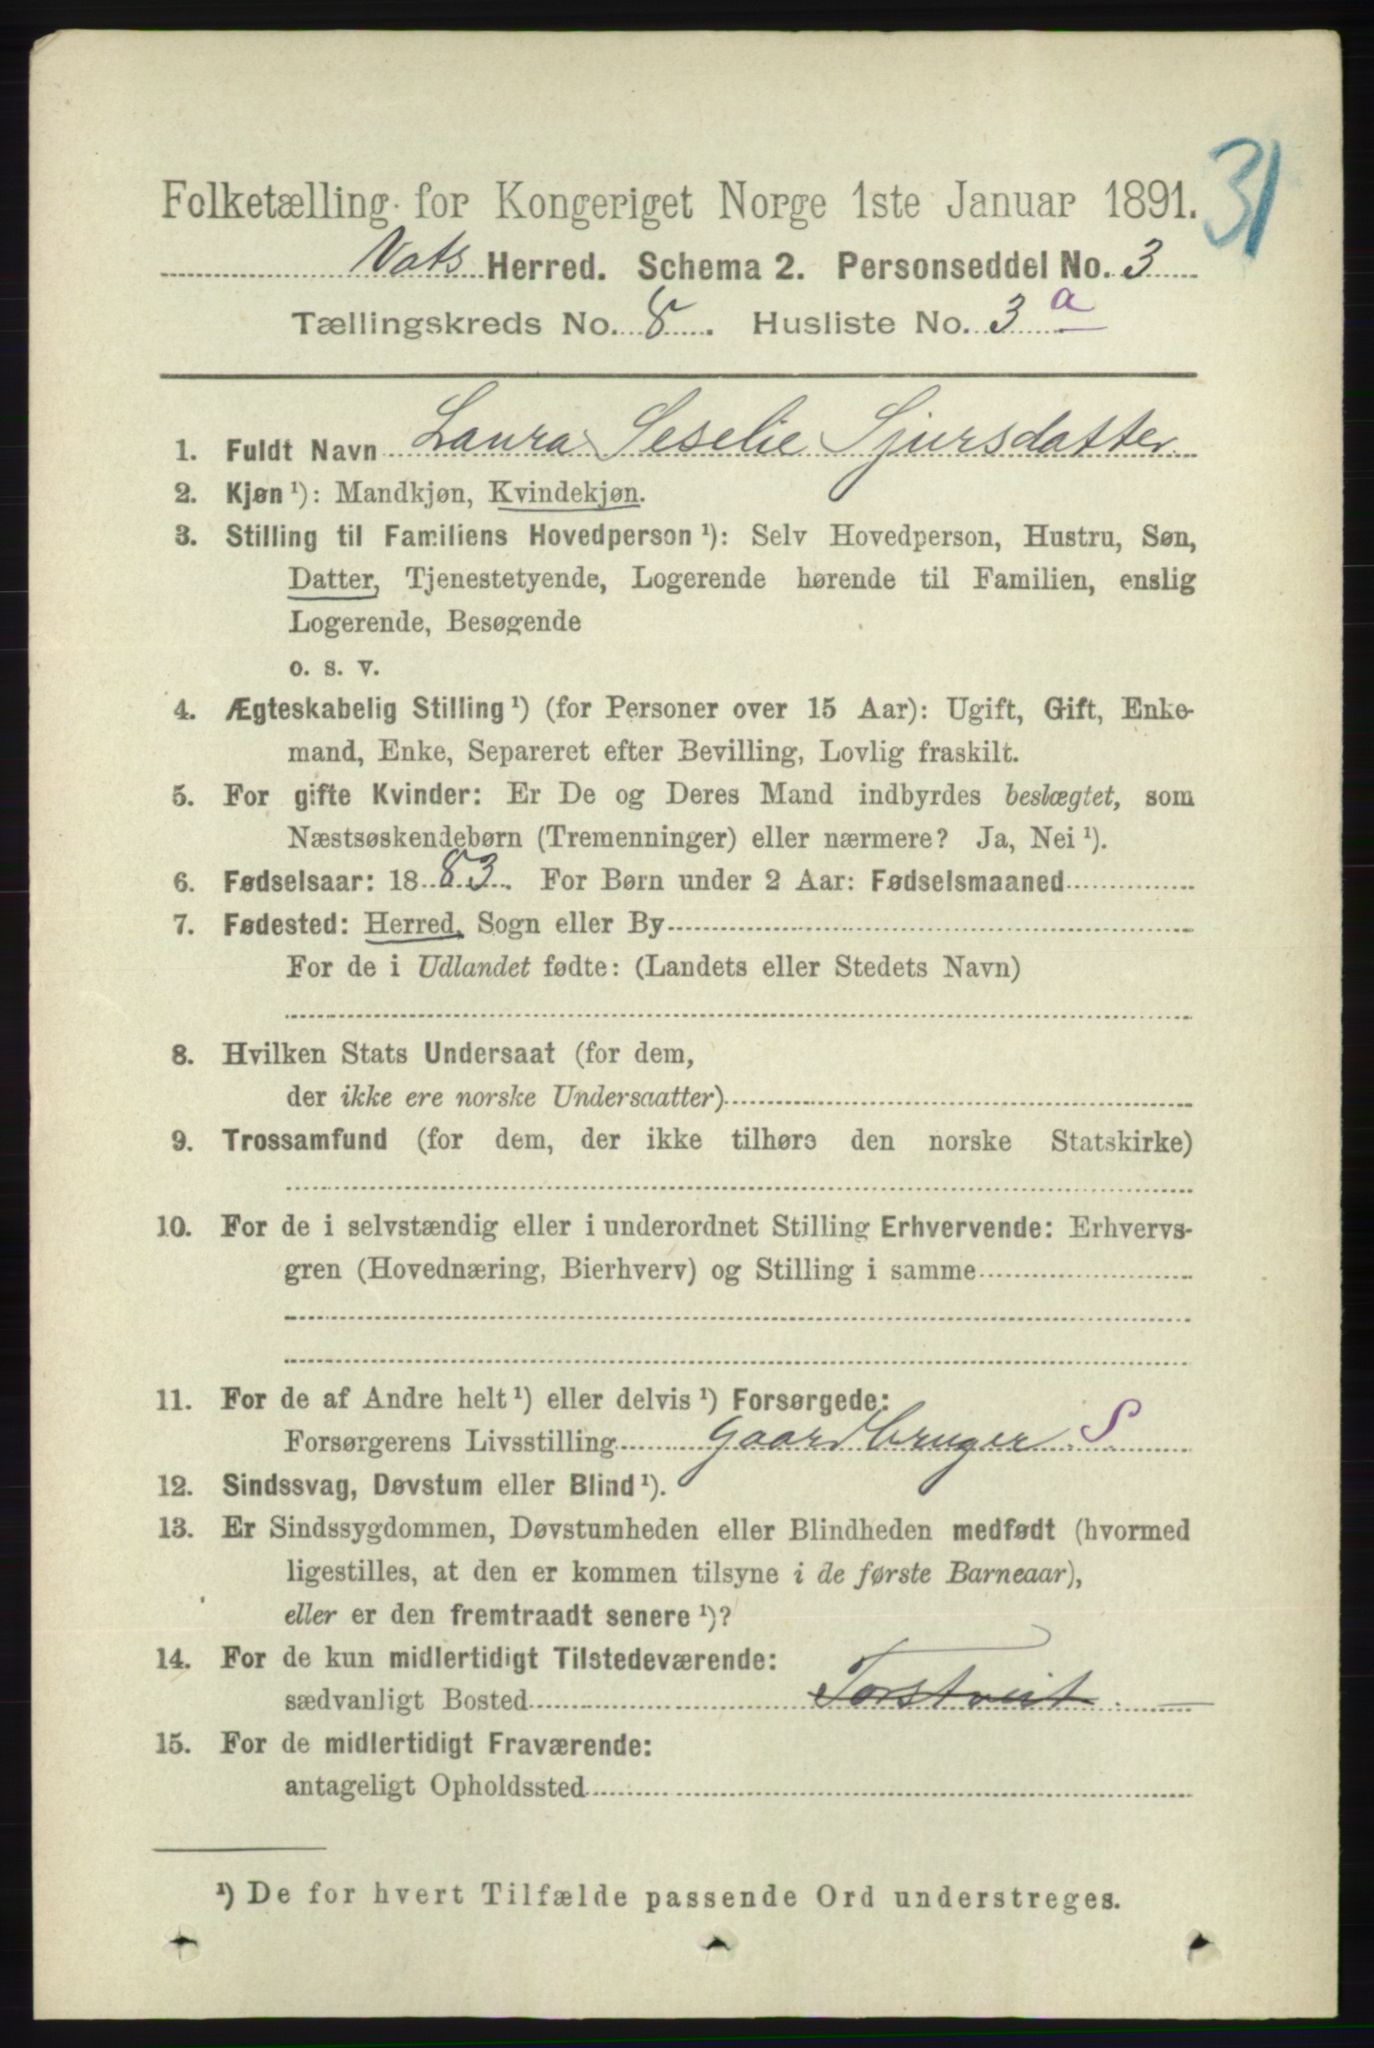 31
Folketælling for Kongeriget Norge 1ste Januar 1891.
Vats Herred. Schema 2. Personseddel No. 3
Tællingskreds No. 8. Husliste No. 3 a
1. Fuldt Navn Laura Seselie Sjursdatter
2. Kjøn ¹): Mandkjøn, Kvindekjøn.
3. Stilling til Familiens Hovedperson ¹): Selv Hovedperson, Hustru, Søn,
Datter, Tjenestetyende, Logerende hørende til Familien, enslig
Logerende, Besøgende
o. s. v.
4. Ægteskabelig Stilling ¹) (for Personer over 15 Aar): Ugift, Gift, Enke-
mand, Enke, Separeret efter Bevilling, Lovlig fraskilt.
5. For gifte Kvinder: Er De og Deres Mand indbyrdes beslægtet, som
Næstsøskendebørn (Tremenninger) eller nærmere? Ja, Nei ¹).
6. Fødselsaar: 1883. For Børn under 2 Aar: Fødselsmaaned
7. Fødested: Herred, Sogn eller By
For de i Udlandet fødte: (Landets eller Stedets Navn)
8. Hvilken Stats Undersaat (for dem,
der ikke ere norske Undersaatter)
9. Trossamfund (for dem, der ikke tilhøre den norske Statskirke)
10. For de i selvstændig eller i underordnet Stilling Erhvervende: Erhvervs-
gren (Hovednæring, Bierhverv) og Stilling i samme
11. For de af Andre helt ¹) eller delvis ¹) Forsørgede:
Forsørgerens Livsstilling Gaardbruger S
12. Sindssvag, Døvstum eller Blind ¹).
13. Er Sindssygdommen, Døvstumheden eller Blindheden medfødt (hvormed
ligestilles, at den er kommen tilsyne i de første Barneaar),
eller er den fremtraadt senere ¹)?
14. For de kun midlertidigt Tilstedeværende:
sædvanligt Bosted Torstveit
15. For de midlertidigt Fraværende:
antageligt Opholdssted
¹) De for hvert Tilfælde passende Ord understreges.